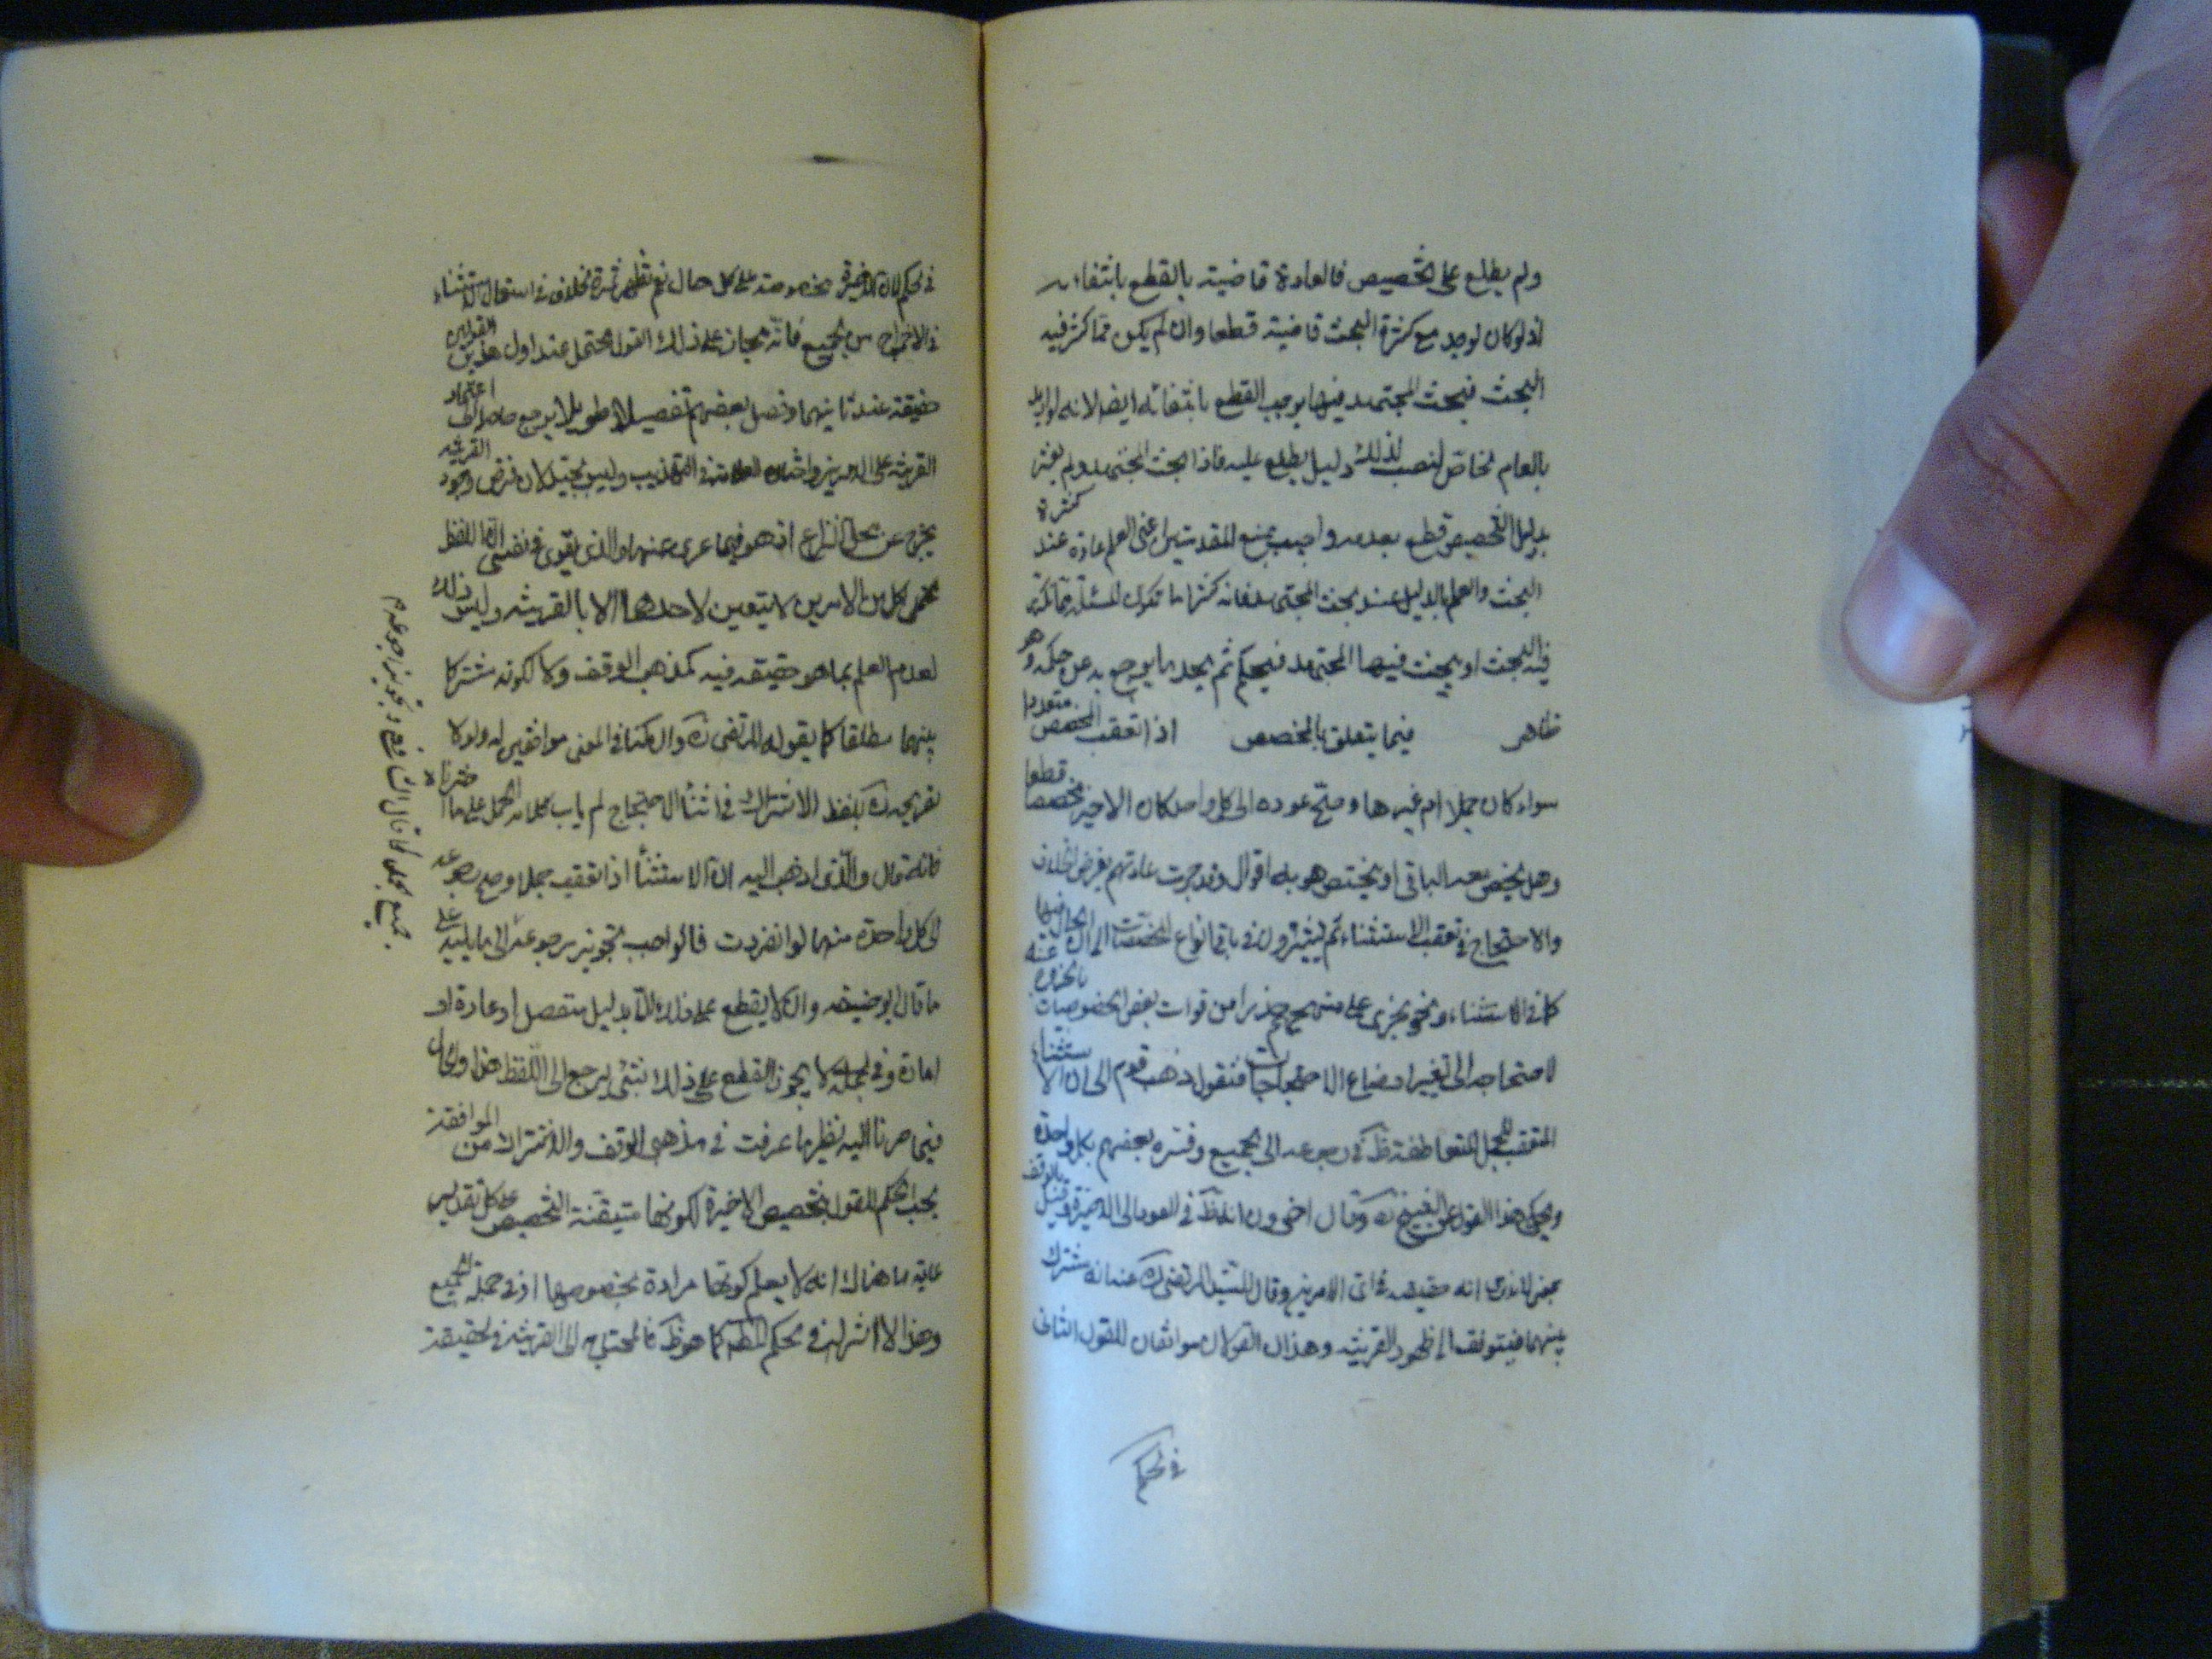 ولم يطلع على تخصيص فالعادة قاضية بالقطع بانتفائه
اذ لو كان لوجد مع كثرة البحث قاضية قطعا وان لم يكن مما كثر فيه
البحث فبحث المجتهد فيها يوجب القطع بانتفائه ايضا لانه لو اريد
بالعام الخاص لنصب لذلك دليل يطلع عليه فاذا بحث المجتهد ولم يعثر
بدليل التخصيص قطع بعدمه واجيب بمنع المقدمتين اعنى العلم عادة عند كثرة
البحث والعلم بالدليل عند بحث المجتهد فانه كثيرا ما تكون المسئلة مما تكرر
فيه البحث او يبحث فيها المجتهد فيحكم ثم يجد ما يرجع به عن حكمه وهو
ظاهر فيما يتعلق بالمخصص اذا تعقب المخصص متعددا
سواء كان جملا ام غيرها وصح عوده الى كل واحد كان الاخير مخصصا قطعا
وهل يخص معه الباقى او يختص هو به اقوال وقد جرت عادتهم بفرض الخلاف
والاحتجاج فى تعقب الاستثناء ثم يشيرون فى باقى انواع المخصصات الى ان الحال فيها
كما فى الاستثناء ونحن نجرى على منهجهم حذرا من فوات بعض الخصوصيات بالخروج عنه
لاحتياجه الى تغيير اوضاع الاحتجاجات فنقول ذهب قوم الى ان الاستثناء
المتعقب للجمل المتعاطفة ظ فى رجوعه الى الجميع وفسره بعضهم بكل واحدة
ويحكى هذا القول عن الشيخ ره وقال اخرون انه ظ فى العود الى الاخيرة وقيل بالوقف
بمعنى لا ندرى انه حقيقة فى اى الامرين وقال السيد المرتضى ره عنه انه مشترك
بينهما فيتوقف الى ظهور القرينة وهذان القولان موافقان للقول الثانى
فى الحكم
فى الحكم لان الاخيرة مخصوصة على كل حال نعم تظهر ثمرة الخلاف فى استعمال الاستثناء
فى الاخراج من الجميع فانه مجاز على ذلك القول محتمل عند اول هذين القولين
حقيقة عند ثانيهما وفصل بعضهم تفصيلا طويلا يرجع حاصله الى اعتماد
القرينة على الامرين واختاره العلامة فى التهذيب وليس بجيد لان فرض وجود القرينة
يخرج عن محل النزاع اذ هو فيما عرى عنها والذى يقوى فى نفسى ان اللفظ
محتمل لكل من الامرين لا يتعين لاحدهما الا بالقرينة وليس ذلك
لعدم العلم بما هو حقيقة فيه كمذهب الوقف ولا لكونه مشتركا
بينهما مطلقا كما يقوله المرتضى ره وان كنا فى المعنى موافقين له ولولا
تصريحه ره بلفظ الاشتراك فى اثناء الاحتجاج لم ياب كلامه الحمل على ما اخترناه
فانه قال والذى اذهب اليه ان الاستثناء اذا تعقب جملا وصح رجوعه
الى كل واحدة منها لو انفردت فالواجب تجويز رجوعه الى ما يليه على
ما قال ابو حنيفة وان لا يقطع على ذلك الا بدليل منفصل او عادة او
امارة وفى الجملة لا يجوز القطع على ذلك بشئ يرجع الى اللفظ هذا والحال
فيما صرنا اليه نظير ما عرفت فى مذهبى الوقف والاشتراك من الموافقة
بحسب الحكم للقول بتخصيص الاخيرة لكونها متيقنة التخصيص على كل تقدير
غاية ما هناك انه لا يعلم كونها مرادة بخصوصها او فى جملة الجميع
وهذا لا اثر له فى الحكم المطم كما هو ظ فالمحتاج الى القرينة فى الحقيقة
جميع الجمل كما قال الشافعى وتجويز رجوعه